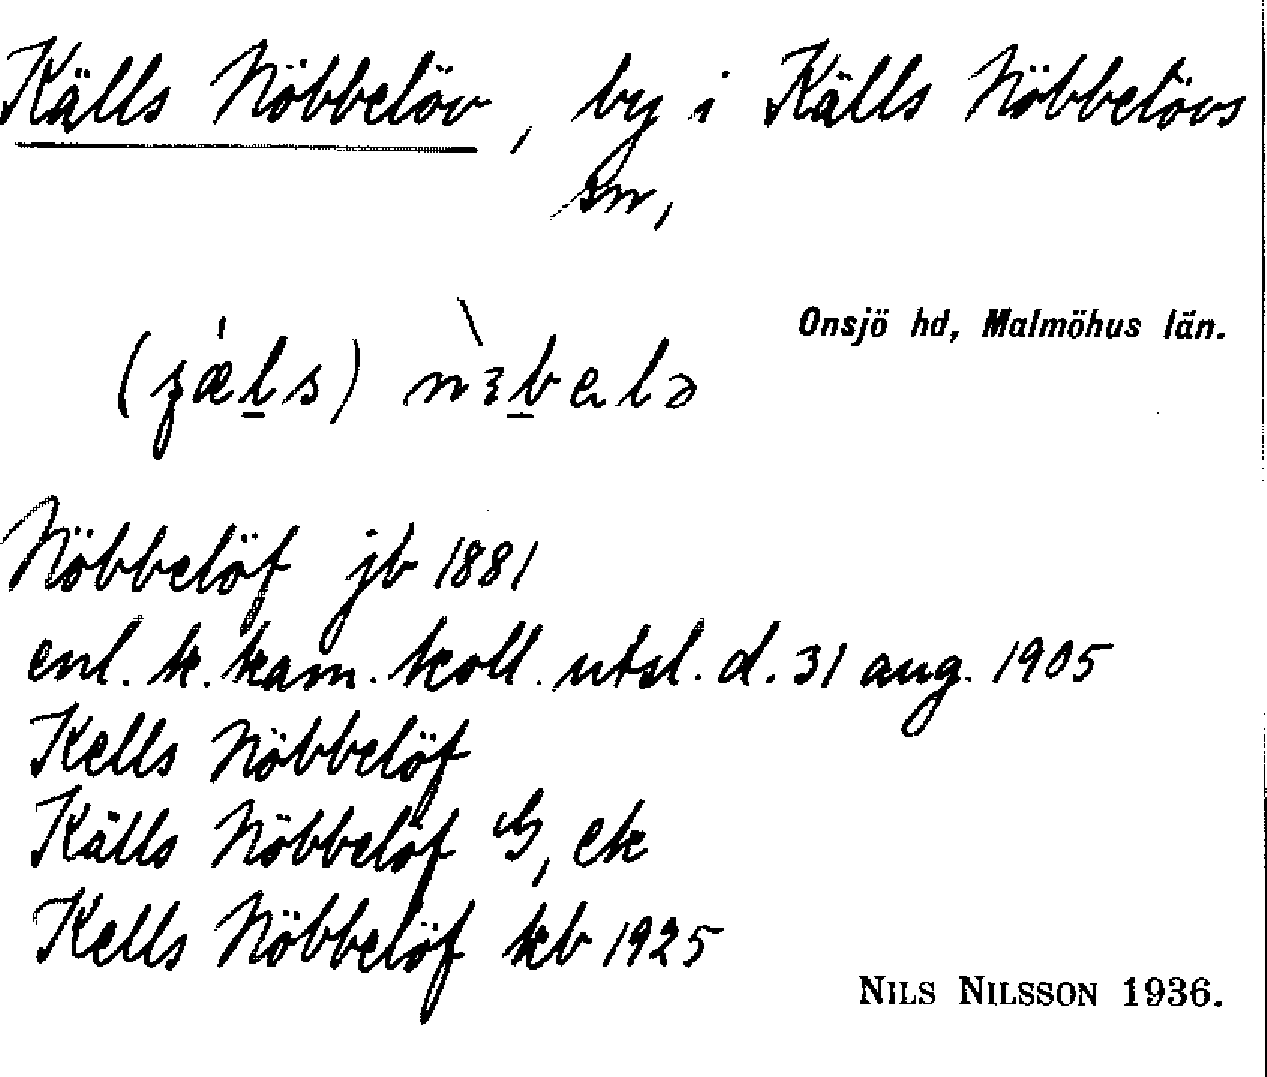 Källs Nöbbelöv, by i Källs Nöbbelövs
sn,
Onsjö hd, Malmöhus län.
Nöbbelöf jb 1881
enl. k. kam. koll. utsl. d. 31 aug. 1905
Kells Nöbbelöf
Källs Nöbbelöf G, ek
Kells Nöbbelöf kb 1925
NILS NILSSON 1936.